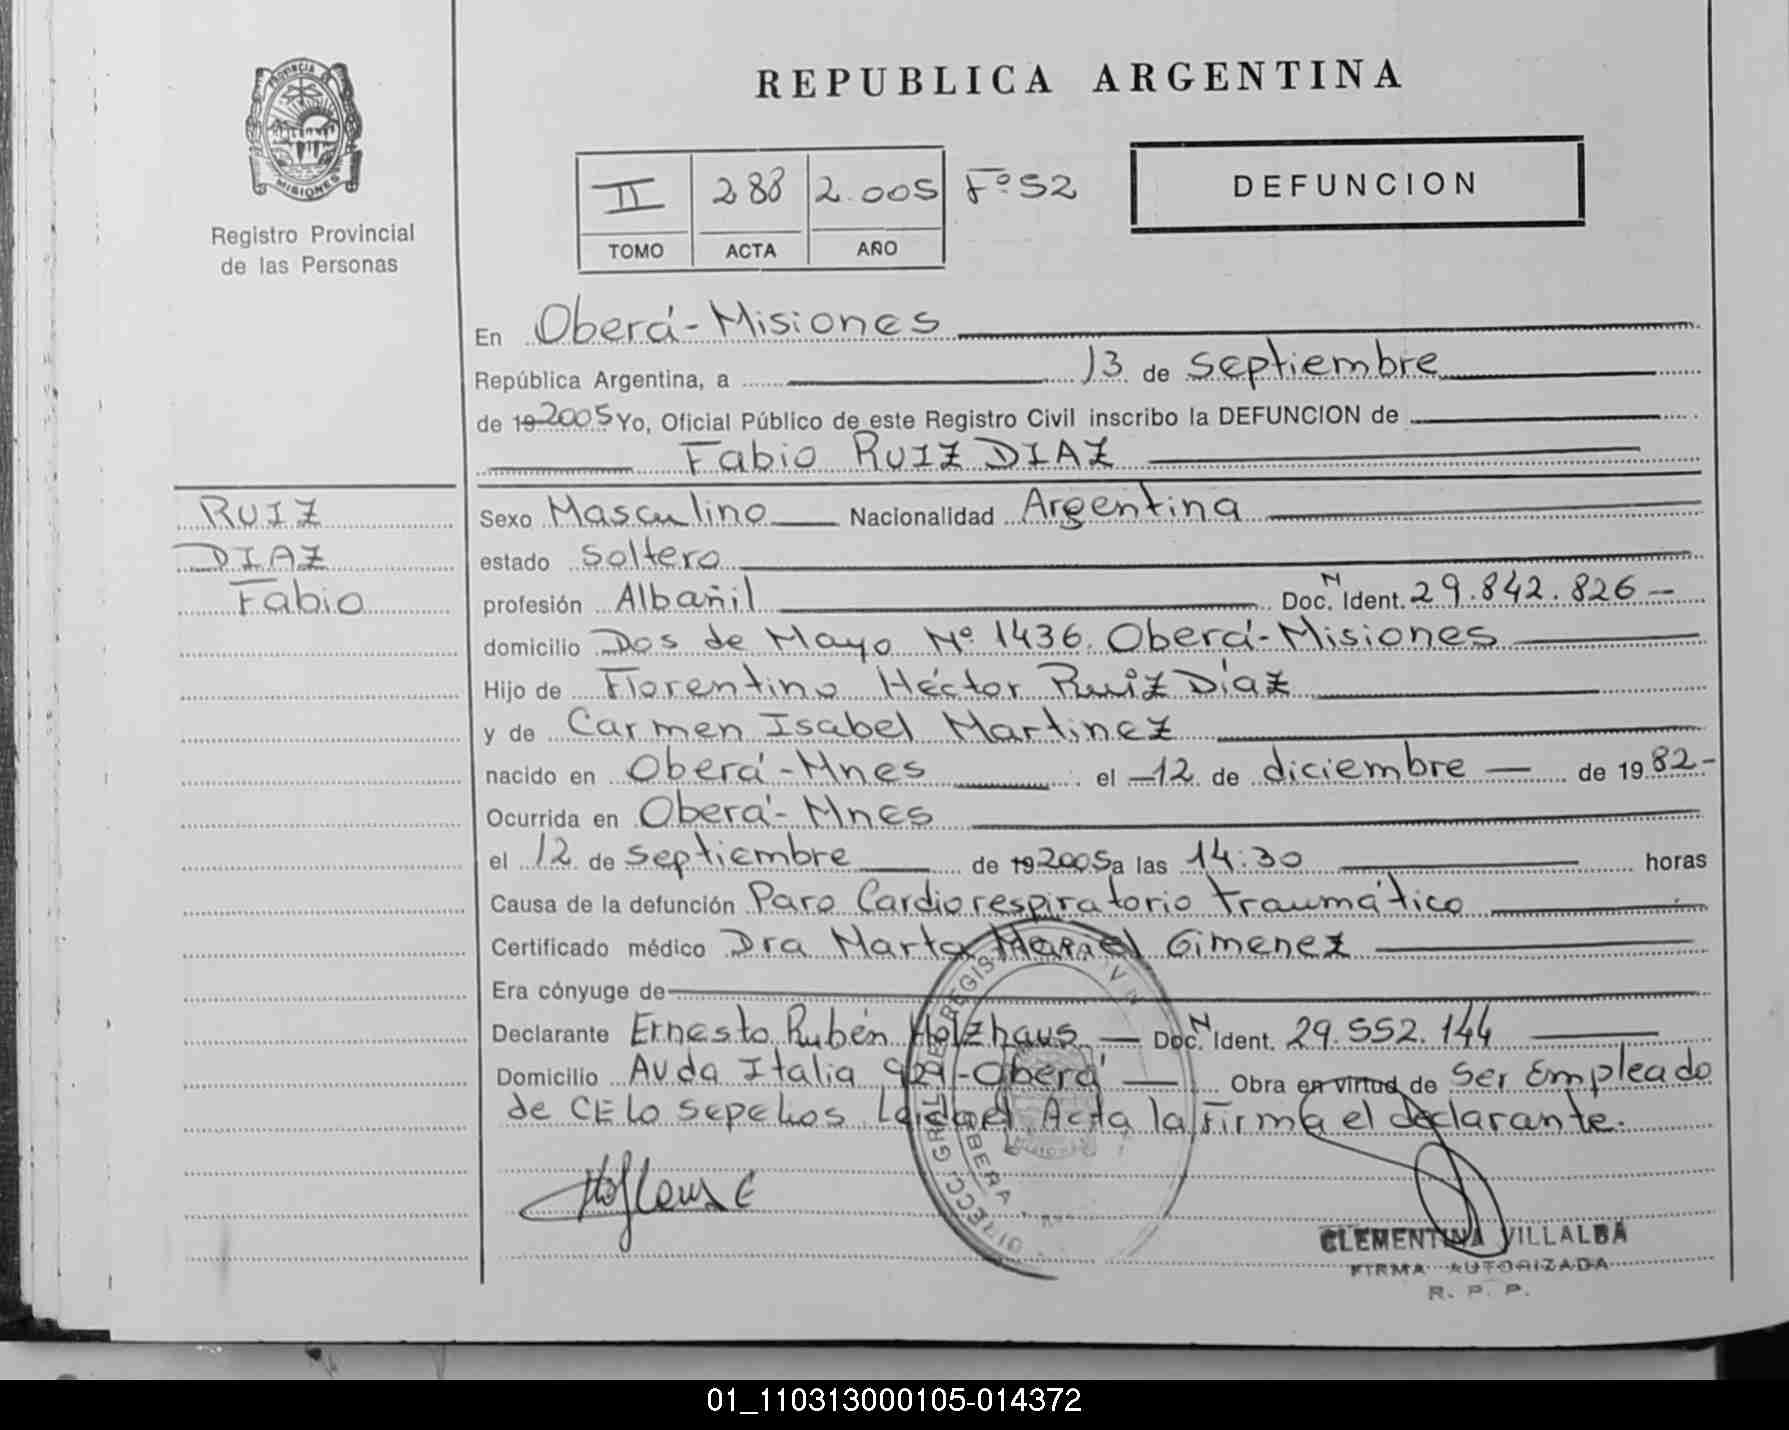 PROVINCIA DE
MISIONES
Registro Provincial
de las Personas
REPUBLICA ARGENTINA
II 288 2.005 Fº 52
TOMO ACTA AÑO
DEFUNCION
En Oberá - Misiones
República Argentina, a 13 de septiembre
de 19 2005 Yo, Oficial Público de este Registro Civil inscribo la DEFUNCION de
Fabio RUIZ DIAZ
RUIZ
DIAZ
Fabio
Sexo Masculino Nacionalidad Argentina
estado soltero
profesión Albañil Doc. N Ident. 29.842.826 -
domicilio Dos de Mayo Nº 1436. Oberá - Misiones
Hijo de Florentino Héctor Ruiz Díaz
y de Carmen Isabel Martinez
nacido en Oberá - Mnes el 12 de diciembre de 1982 -
Ocurrida en Oberá - Mnes
el 12 de septiembre de 19 2005 a las 14:30 horas
Causa de la defunción Paro Cardiorespiratorio traumático
Certificado médico Dra Marta Gimenez
Era cónyuge de
Declarante Ernesto Rubén Holzhaus - Doc. N Ident. 29.552.144
Domicilio Avda Italia 929 - Oberá Obra en virtud de ser Empleado
de CELO sepelios Leida el Acta la firma el declarante.
CLEMENTINA VILLALBA
FIRMA AUTORIZADA
R. P. P.
01_110313000105-014372